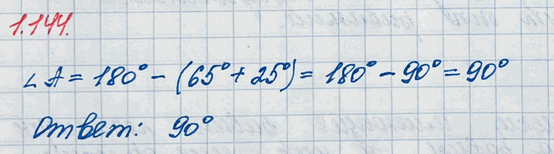 1.144.
∠A = 180° − (65° + 25°) = 180° − 90° = 90°
Ответ: 90°